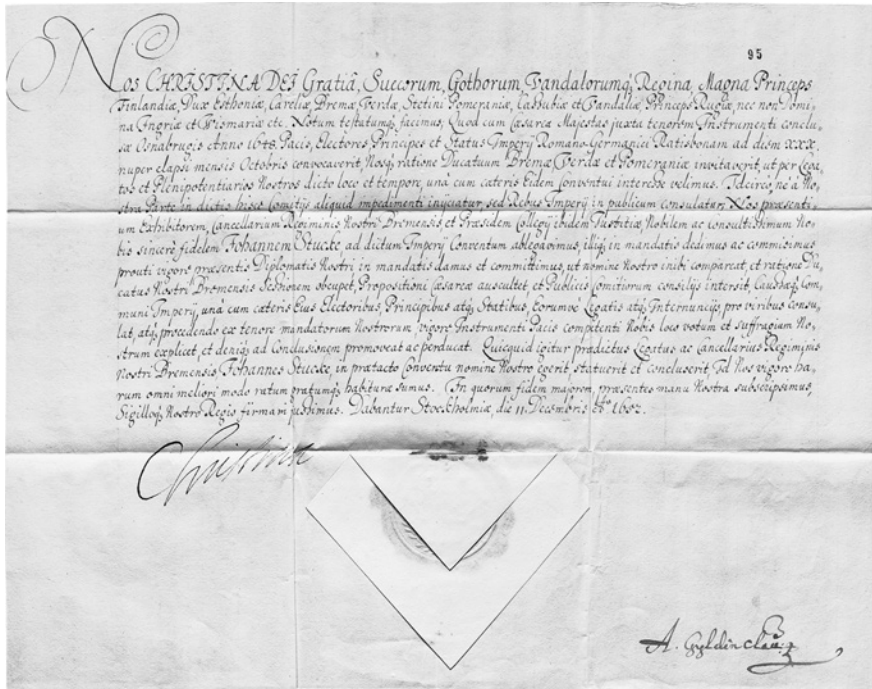 95
Nos CHRISTINA DEJ Gratiâ, Suecorum, Gothorum, Vandalorumq, Regina, Magna Princeps
Finlandiæ, Dux Esthoniæ, Careliæ, Bremæ, Verdæ, Stetini Pomeraniæ, Cassubiæ et Vandaliæ, Princeps Rugiæ, nec non Domi-
na Ingriæ et Wismariæ etc. Notum testatumq, facimus, Quod cum Cæsarea Majestas juxta tenorem Instrumenti conclu-
sæ Osnabrugis Anno 1648. Pacis, Electores Principes et Status Imperij Romano-Germanici Ratisbonam ad diem XXX.
nuper elapsi mensis Octobris convocaverit, Nosq, ratione Ducatuum Bremæ Verdæ et Pomeraniæ invitaverit, ut per Lega-
tos et Plenipotentiarios Nostros dicto loco et tempore, una cum cæteris Eidem Conventui interesse velimus. Idcirco ne à No-
stra Parte in dictis hisce Comitijs aliquid impedimenti injiciatur, sed Rebus Imperij in publicum consulatur; Nos præsenti-
um Exhibitorem, Cancellarium Regiminis Nostri Bremensis, et Præsidem Collegij ibidem Justitiæ, Nobilem ac consultissimum No-
bis sincerè fidelem Johannem Stucke ad dictum Imperij Conventum ablegavimus, illiq, in mandatis dedimus ac commisimus
prouti vigore præsentis Diplomatis Nostri in mandatis damus et committimus, ut nomine Nostro inibi compareat, et ratione Du-
catus Nostri Bremensis Sessionem occupet, Propositioni Cæsareæ auscultet, et Publicis Comitiorum consilijs intersit, Causasq, Com-
muni Imperij, unà cum cæteris Eius Electoribus, Principibus atq, Statibus, Eorumve Legatis atq, Internuncijs, pro viribus consu-
lat, atq, procedendo ex tenore mandatorum Nostrorum, vigore Instrumenti Pacis competenti Nobis loco votum et suffragium No-
strum explicet, et deniq, ad Conclusionem promoveat ac perducat. Quicquid igitur prædictus Legatus ac Cancellarius Regiminis
Nostri Bremensis Johannes Stucke, in prætacto Conventu nomine Nostro egerit, statuerit et concluserit, Id Nos vigore ha-
rum omni meliori modo ratum gratumq, habituræ sumus. In quorum fidem majorem, præsentes manu Nostra subscripsimus,
Sigilloq, Nostro Regio firmari jussimus. Dabantur Stockholmiæ, die 11. Decembris 1652.
Christina
A. Gyldenclau